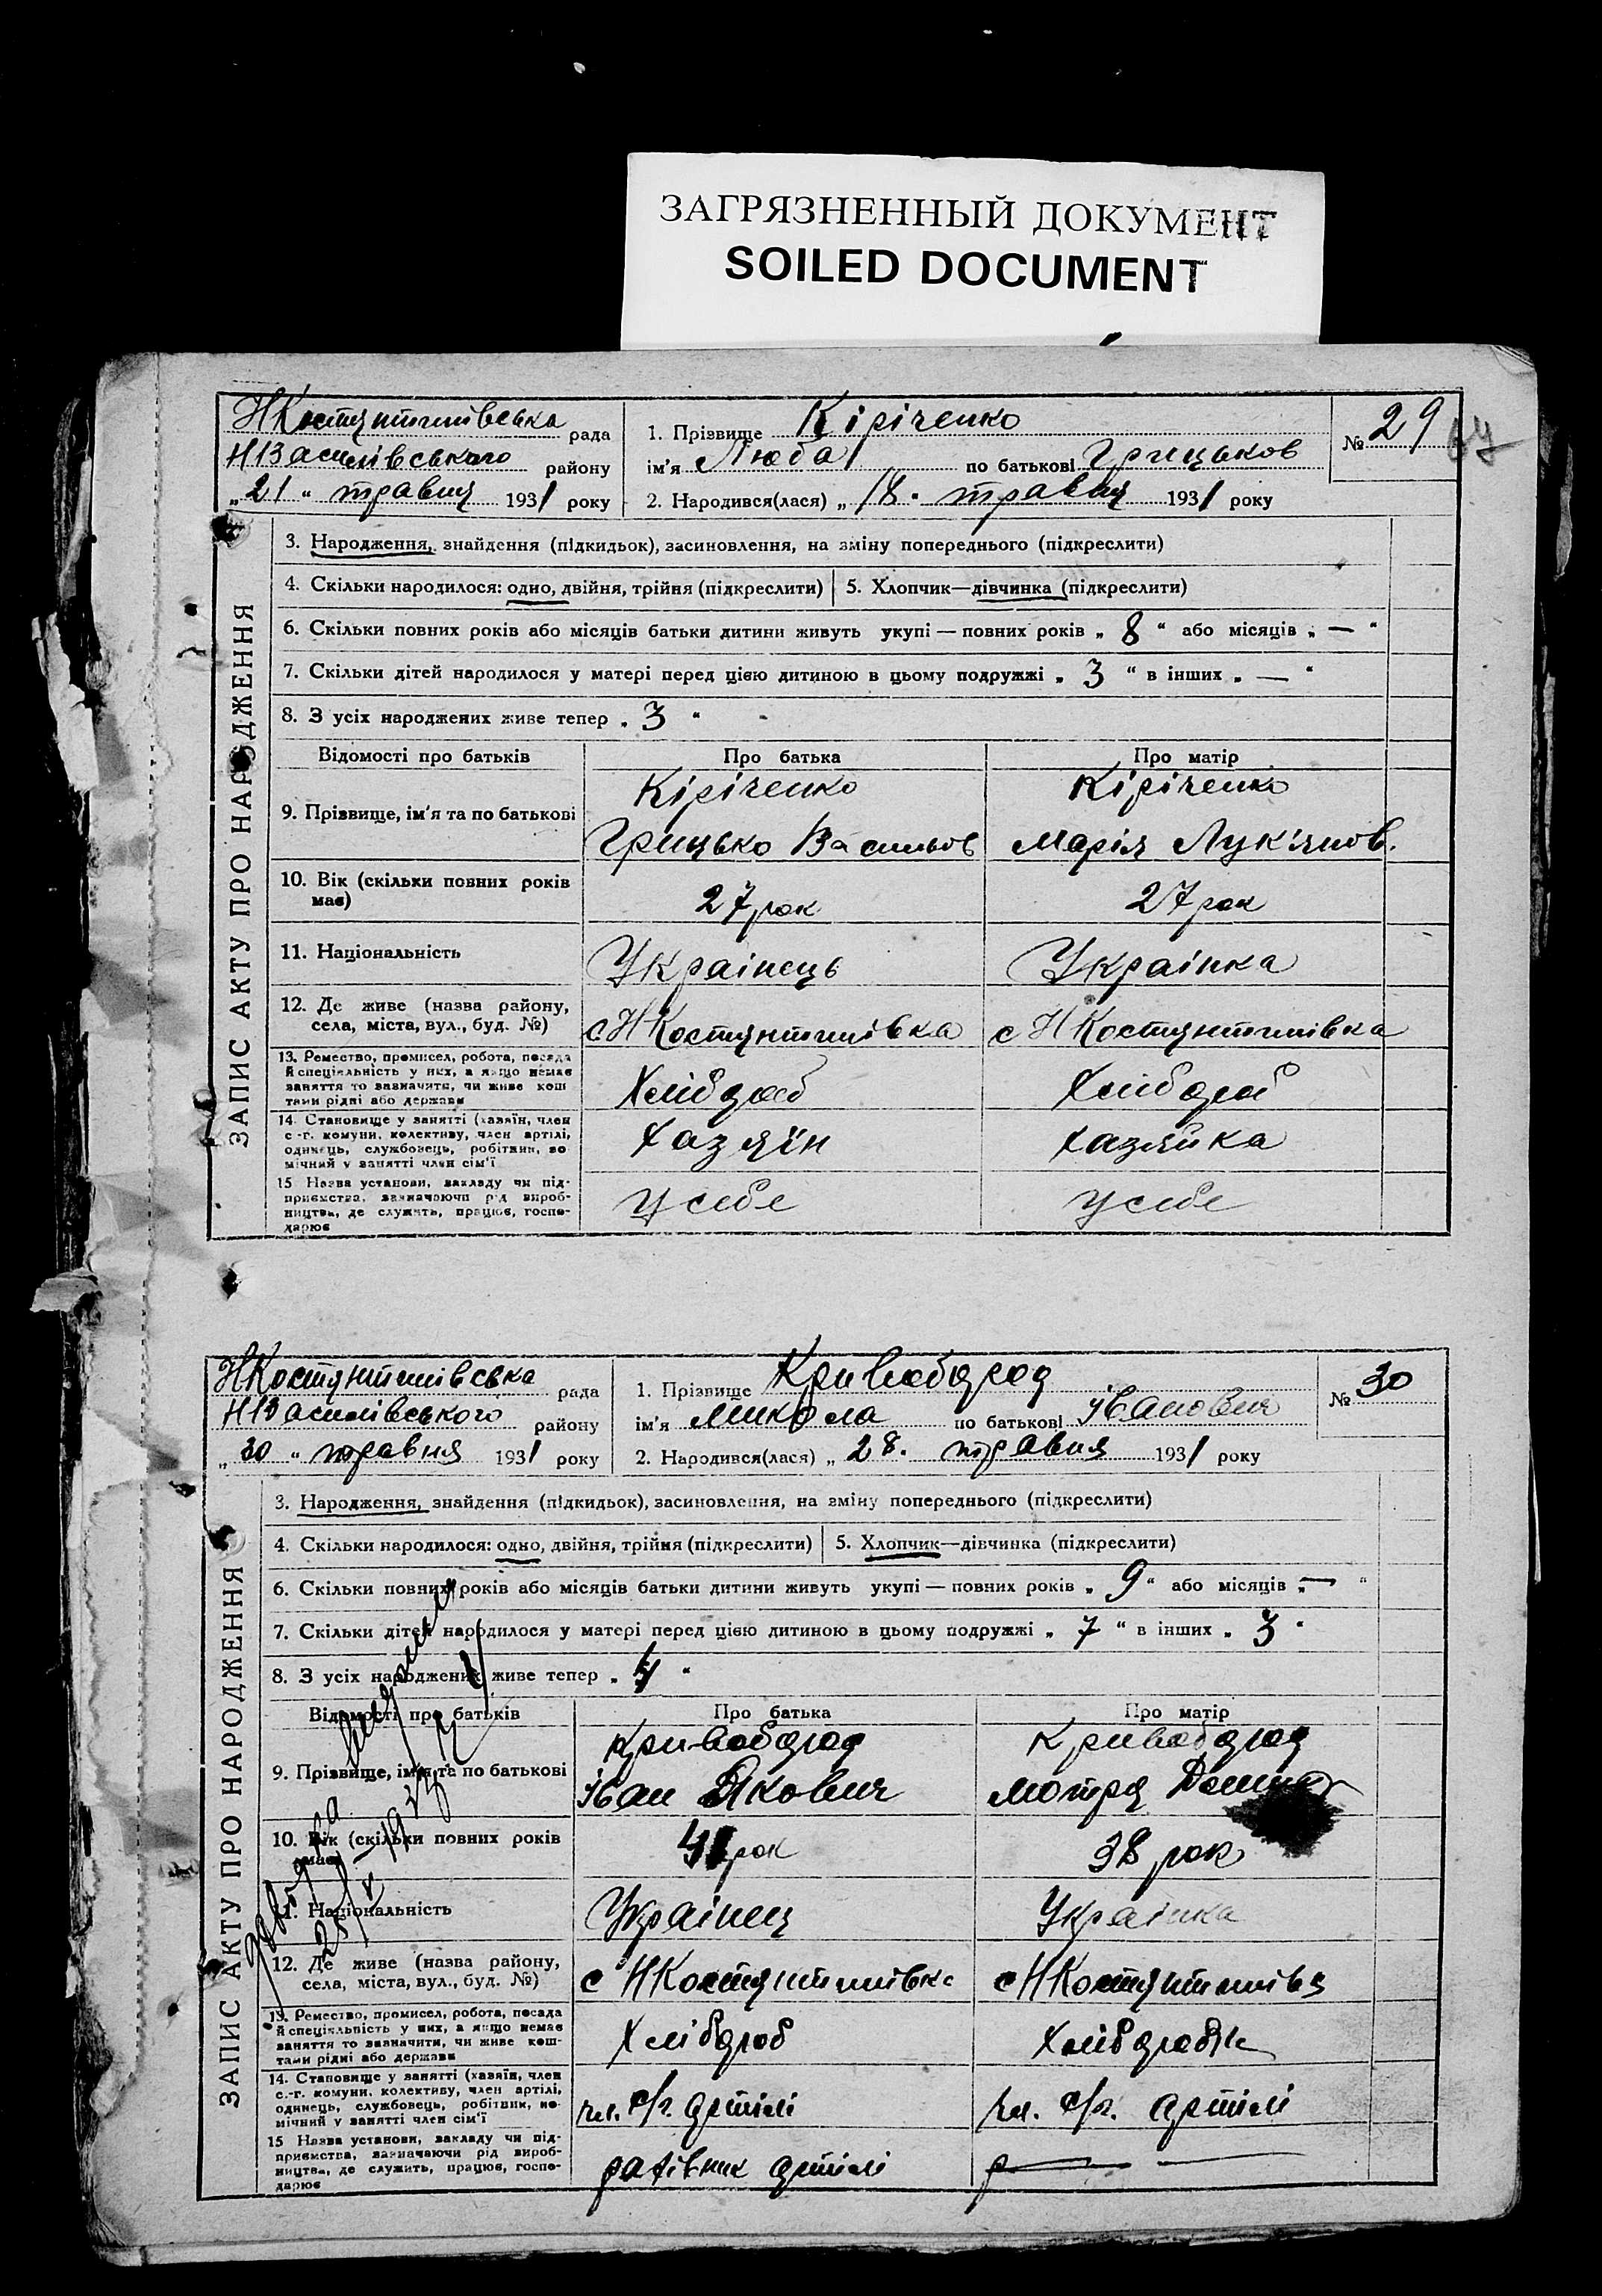 ЗАГРЯЗНЕННЫЙ ДОКУМЕНТ
SOILED DOCUMENT
НКостянтинівська рада
НВасилівського району
„21“ травня 1931 року
1. Прізвище Кіріченко
ім'я Люба по батькові Грицьков
2. Народився(лася) „18. травня 1931 року
№ 29
3. Народження, знайдення (підкидьок), засиновлення, на зміну попереднього (підкреслити)
4. Скільки народилося: одно, двійня, трійня (підкреслити) 5. Хлопчик—дівчинка (підкреслити)
6. Скільки повних років або місяців батьки дитини живуть укупі — повних років „ 8 “ або місяців „ — “
7. Скільки дітей народилося у матері перед цією дитиною в цьому подружжі „ 3 “ в інших „ — “
8. З усіх народжених живе тепер „ 3 “
ЗАПИС АКТУ ПРО НАРОДЖЕННЯ
Відомості про батьків Про батька Про матір
9. Прізвище, ім'я та по батькові
Кіріченко Кіріченко
Грицько Васильов Марія Лук'янов.
10. Вік (скільки повних років має) 27 рок 27 рок
11. Національність Українець Українка
12. Де живе (назва району,
села, міста, вул., буд. №) с НКостянтинівка с НКостянтинівка
13. Ремество, промисел, робота, посада
й спеціяльність у них, а якщо немає
заняття то зазначити, чи живе кош
тами рідні або держави
Хлібороб Хлібороб
14. Становище у занятті (хазяїн, член
с.-г. комуни, колективу, член артілі,
одинець, службовець, робітник, по
мічний у занятті член сім'ї
Хазяїн Хазяйка
15 Назва установи, закладу чи під-
приємства, зазначаючи рід вироб-
ництва, де служить, працює, госпо-
дарює
У себе У себе
НКостянтинівська рада
НВасилівського району
„30“ травня 1931 року
1. Прізвище Кривобород
ім'я Микола по батькові Іванович
2. Народився(лася) „28. травня 1931 року
№ 30
3. Народження, знайдення (підкидьок), засиновлення, на зміну попереднього (підкреслити)
4. Скільки народилося: одно, двійня, трійня (підкреслити) 5. Хлопчик—дівчинка (підкреслити)
6. Скільки повних років або місяців батьки дитини живуть укупі — повних років „ 9 “ або місяців „ — “
7. Скільки дітей народилося у матері перед цією дитиною в цьому подружжі „ 7 “ в інших „ 3 “
8. З усіх народжених живе тепер „ 4 “
ЗАПИС АКТУ ПРО НАРОДЖЕННЯ
Відомості про батьків Про батька Про матір
9. Прізвище, ім'я та по батькові
Кривобород Кривобород
Іван Якович Мотря
10. Вік (скільки повних років має) рок 38 рок
11. Національність Українец Українка
12. Де живе (назва району,
села, міста, вул., буд. №) с НКостянтинівка с НКостянтинівка
13. Ремество, промисел, робота, посада
й спеціяльність у них, а якщо немає
заняття то зазначити, чи живе кош-
тами рідні або держави
Хлібороб Хлібороб
14. Становище у занятті (хазяїн, член
с.-г. комуни, колективу, член артілі,
одинець, службовець, робітник, по-
мічний у занятті член сім'ї
чл. с/г. артілі чл. с/г. артілі
15 Назва установи, закладу чи під-
приємства, зазначаючи рід вироб-
ництва, де служить, працює, госпо-
дарює
артілі